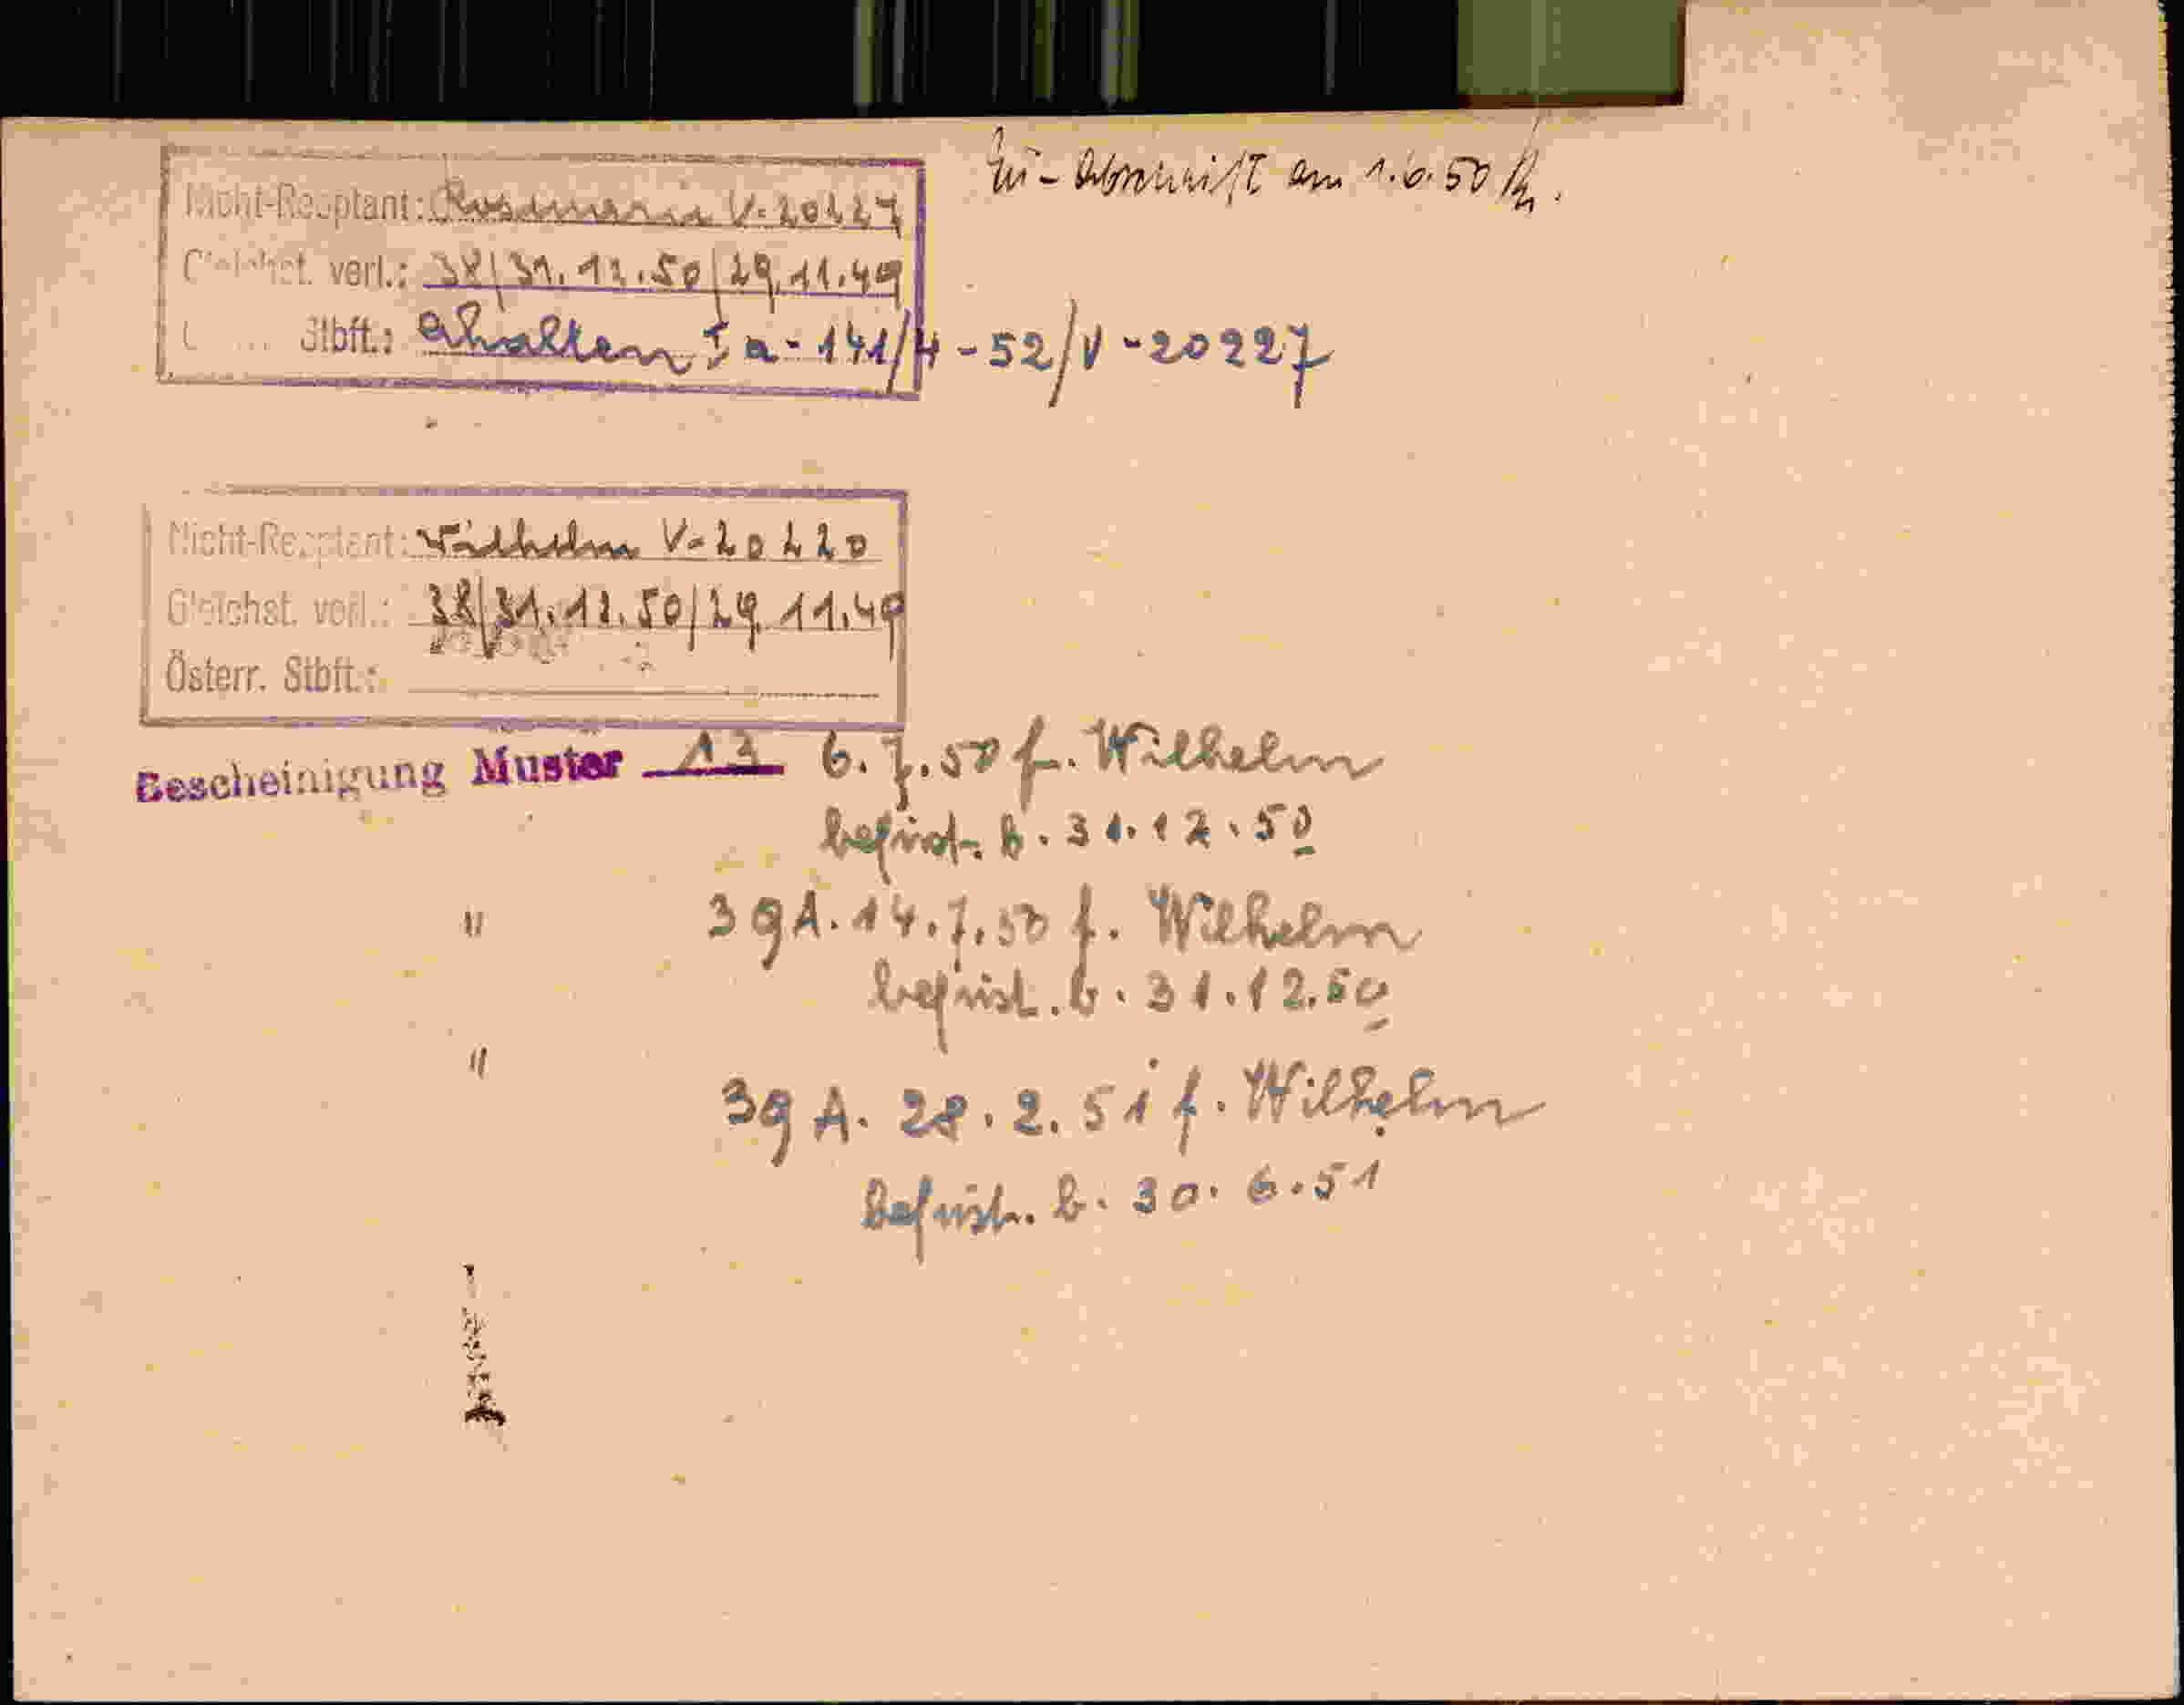 Zü-Abschrift am 1.6.50
Nicht-Reoptant: Rosamaria V-20227
Gleichst. verl.: 38/31.12.50/29.11.49
Stbft.: erhalten I a - 141/4 - 52/V - 20227
Nicht-Reoptant: Wilhelm V-20220
Gleichst. verl.: 38/31.12.50/29.11.49
Österr. Stbft.:
Bescheinigung Muster 13 6.7.50 f. Wilhelm
befrist. b. 31.12.50
" 39A. 14.7.50 f. Wilhelm
befrist. b. 31.12.50
" 39 A. 28.2.51 f. Wilhelm
befrist. b. 30.6.51